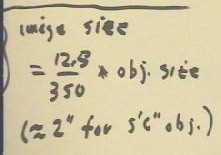 image size
= 12.5/350 * obj. size
(≈ 2" for 5'6" obj.)